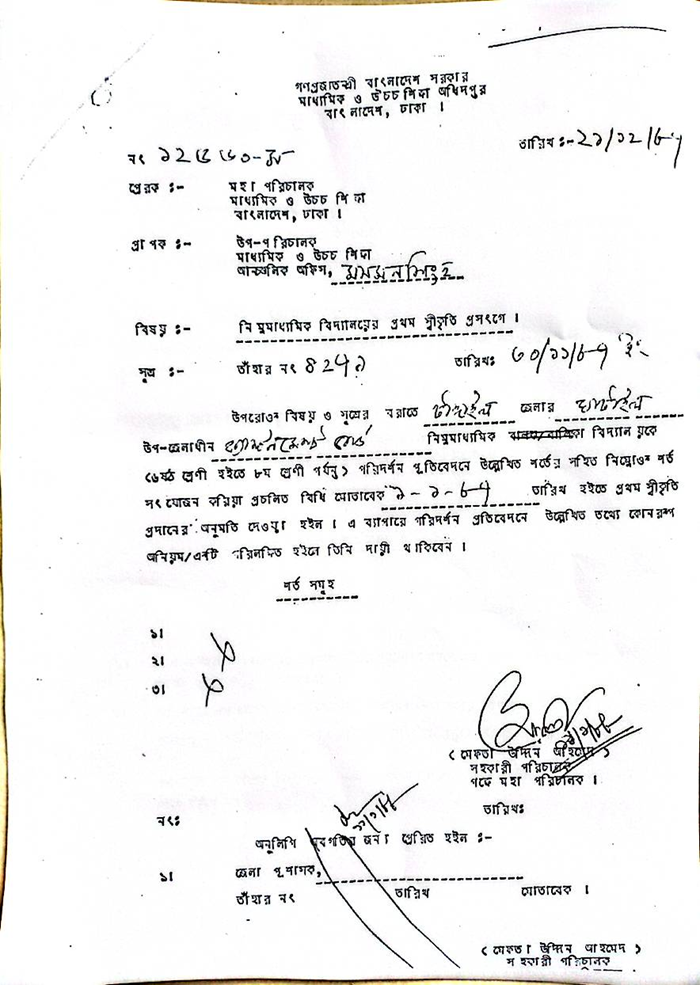 গণপ্রজাতন্ত্রী বাংলাদেশ সরকার
মাধ্যমিক ও উচ্চ শিক্ষা অধিদপ্তর
বাংলাদেশ, ঢাকা ।
নং ১২৫৬০-
তারিখ :- ২১/১২/৮৭
প্রেরক :- মহা পরিচালক
মাধ্যমিক ও উচ্চ শিক্ষা
বাংলাদেশ, ঢাকা ।
প্রাপক :- উপ-পরিচালক
মাধ্যমিক ও উচ্চ শিক্ষা
আঞ্চলিক অফিস, ময়মনসিংহ
বিষয় :- নিম্নমাধ্যমিক বিদ্যালয়ের প্রথম স্বীকৃতি প্রসংগে ।
সূত্র :- তাঁহার নং ৪২৭৯ তারিখঃ ৩০/১১/৮৭ ইং
উপরোক্ত বিষয় ও সূত্রের বরাতে টাঙ্গাইল জেলার ঘাটাইল
উপ-জেলাধীন ক্যান্টনমেন্ট বোর্ড নিম্নমাধ্যমিক বিদ্যালয়কে
(৬ষ্ঠ শ্রেণী হইতে ৮ম শ্রেণী পর্যন্ত) পরিদর্শন প্রতিবেদনে উল্লেখিত শর্তের সহিত নিম্নোক্ত শর্ত
সংযোজন করিয়া প্রচলিত বিধি মোতাবেক ১-১-৮৭ তারিখ হইতে প্রথম স্বীকৃতি
প্রদানের অনুমতি দেওয়া হইল । এ ব্যাপারে পরিদর্শন প্রতিবেদনে উল্লেখিত তথ্যে কোনরূপ
অনিয়ম/ত্রুটি পরিলক্ষিত হইলে তিনি দায়ী থাকিবেন ।
শর্ত সমূহ
১।
২।
৩।
(মেফতা উদ্দিন আহমেদ)
সহকারী পরিচালক
পক্ষে মহা পরিচালক ।
নং: তারিখঃ
অনুলিপি অবগতির জন্য প্রেরিত হইল :-
১। জেলা প্রশাসক,
তাঁহার নং তারিখ মোতাবেক ।
(মেফতা উদ্দিন আহমেদ)
সহকারী পরিচালক